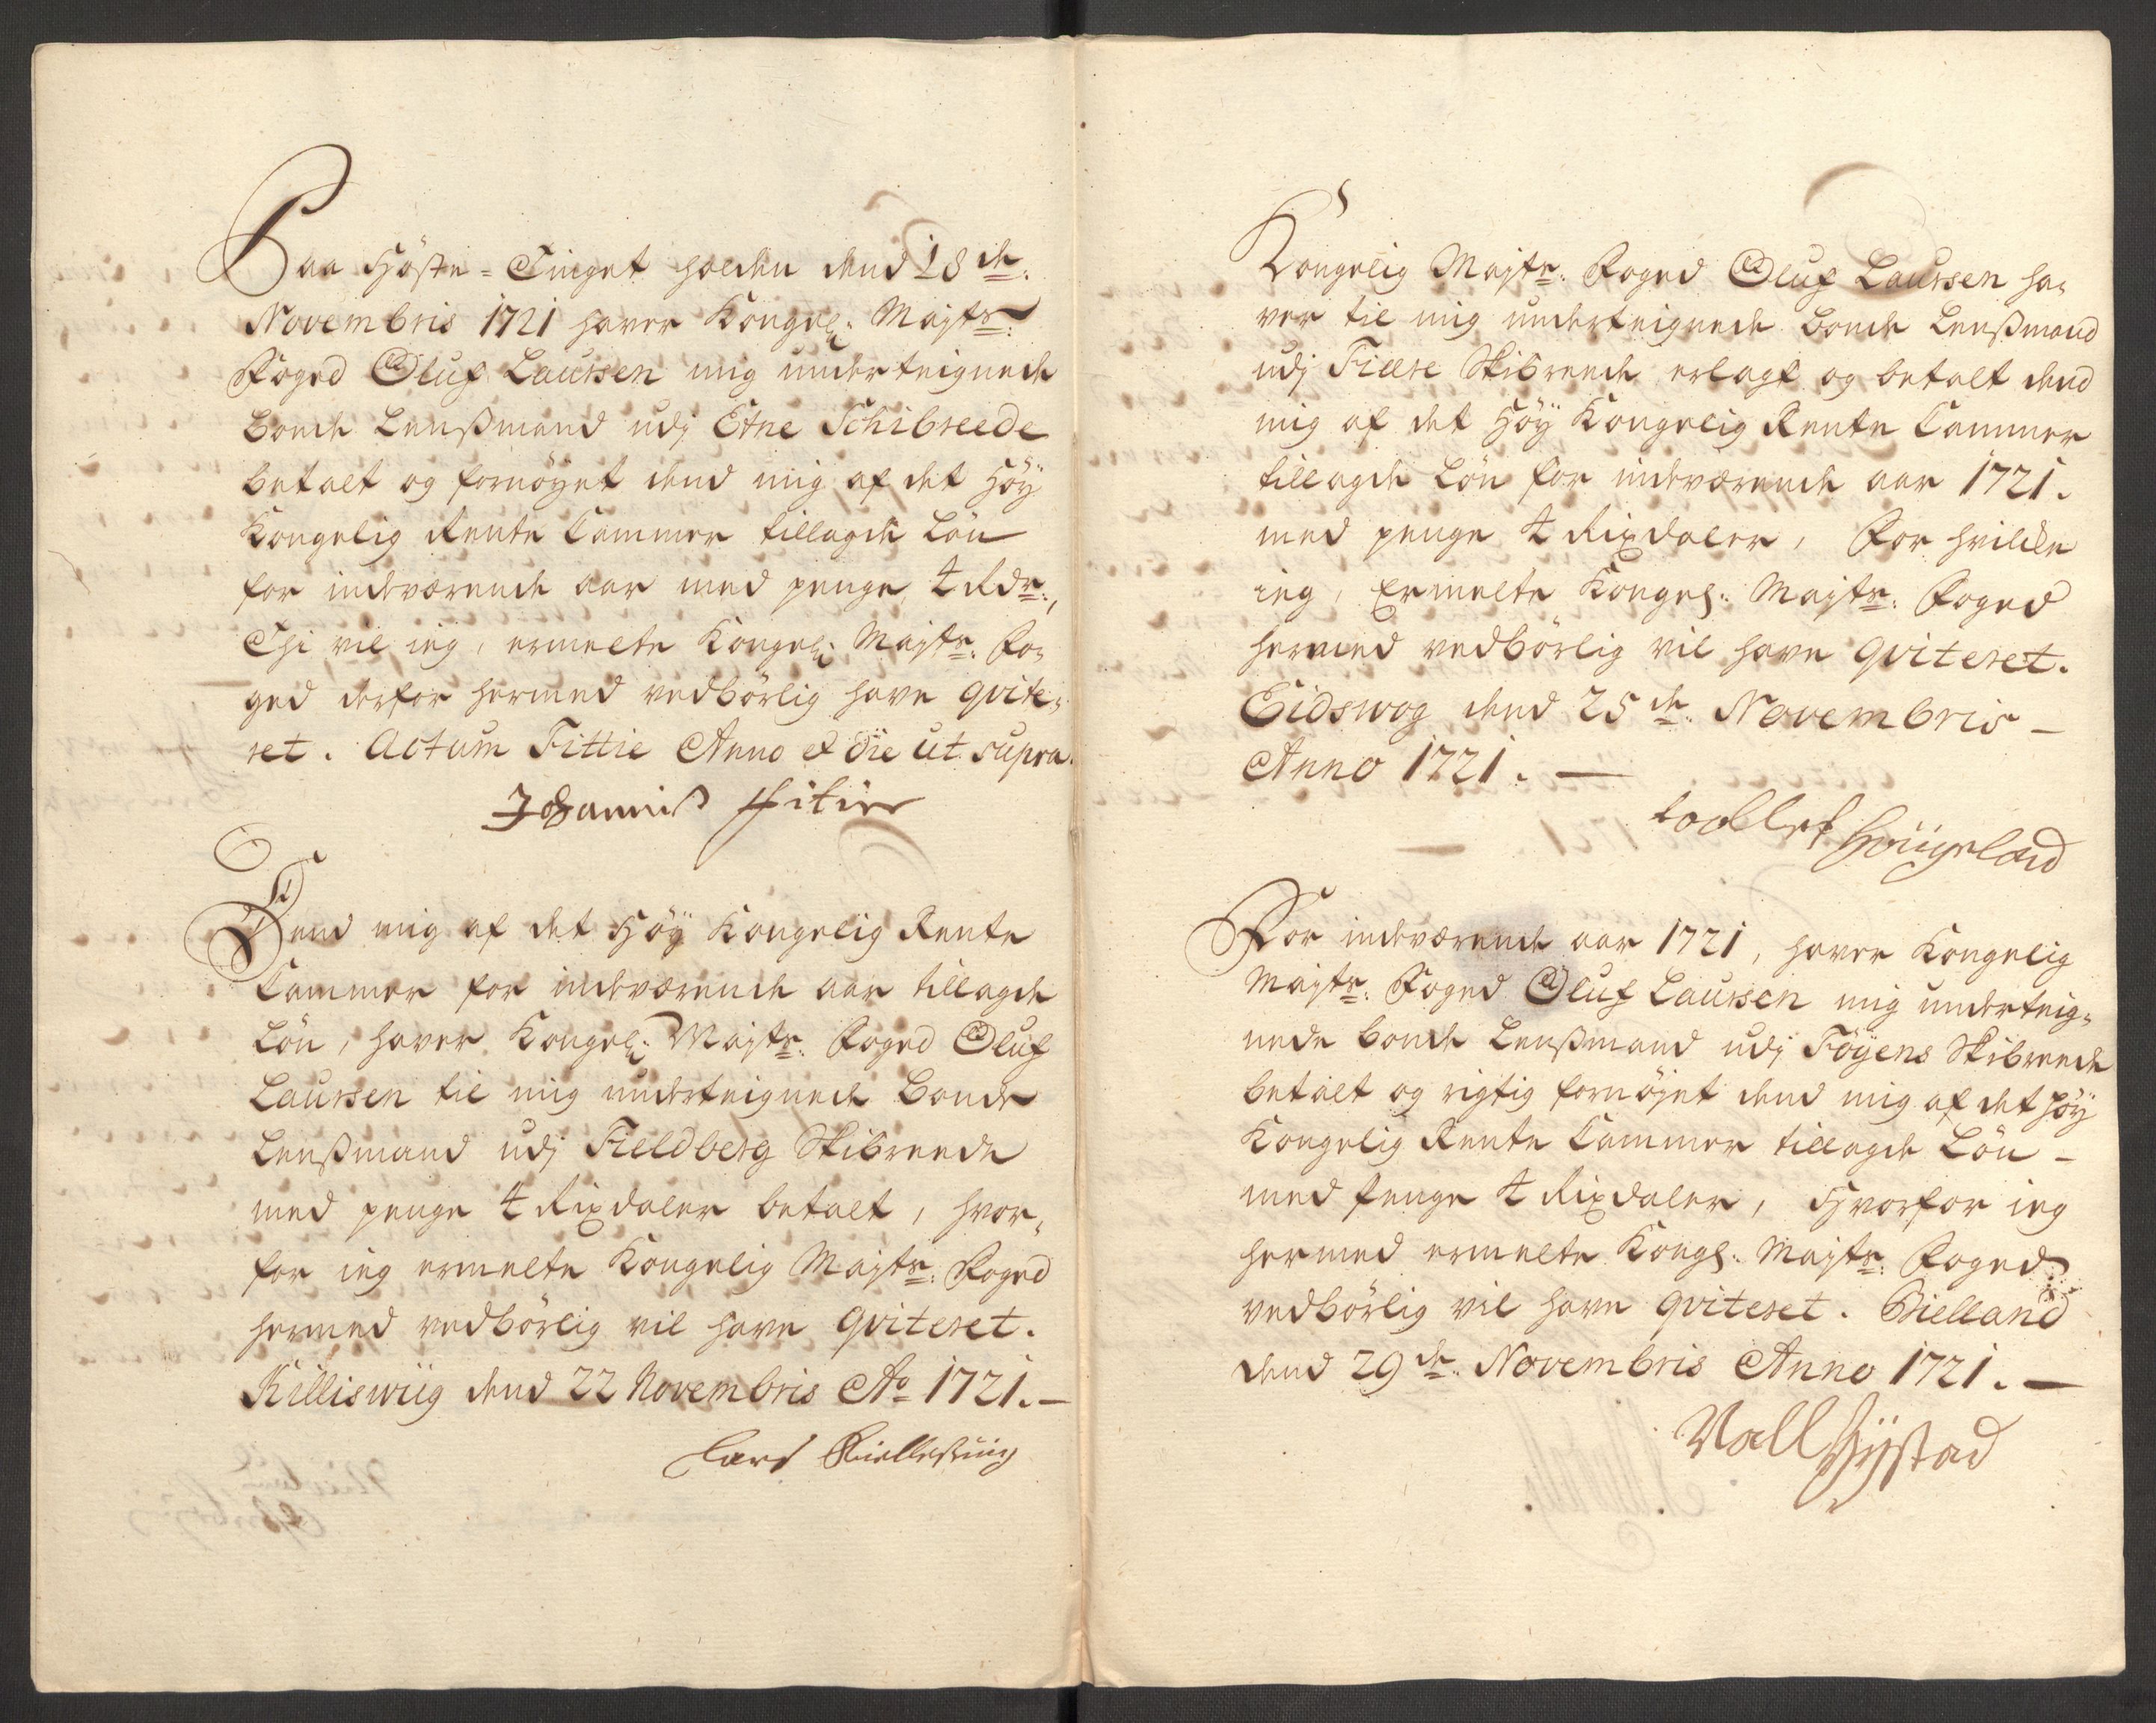 Paa Höste-Tinget holden dend 18de.
Novembris 1721 haver Kongel: Majts:
Foged Oluf Laursen mig underteignede
Bonde Lensßmand udj Etne Schibreede
betalt og fornöyet dend mig af det Höy
Kongelig Rente Cammer tillagde Lön
for indeværende aar med penge 4 Rdr:,
Thi vil ieg, ermelte Kongel: Majts: Fo-
ged derfor hermed vedbörlig have qvite-
ret. Actum Fittie Anno et die ut supra.
Johanniß Fitie
Dend mig af det Höy Kongelig Rente
Cammer for indeværende aar tillagde
Lön, haver Kongel: Majts: Foged Oluf
Laursen til mig underteignede Bonde
Lensßmand udj Fieldberg Skibreede
med penge 4 Rixdaler betalt, hvor-
for ieg ermelte Kongelig Majts: Foged
hermed vedbörlig vil have qviteret.
Killiswiig dend 22 Novembris Ao 1721.-
Lars Kiellesuiig
Kongelig Majts: Foged Oluf Laursen ha-
ver til mig underteignede Bonde Lensßmand
udj Fiere Skibreede erlagt og betalt dend
mig af det Höy Kongelig Rente Cammer
tillagde Lön for indeværende aar 1721.
med penge 4 Rixdaler, For hvilcke
ieg, Ermelte Kongel: Majts: Foged
hermed vedbörlig vil have qviteret.
Eidswog dend 25de. Novembris -
Anno 1721. -
Hougeland
For indeværende aar 1721, haver Kongelig
Majts: Foged Oluf Laursen mig underteig-
nede Bonde Lensßmand udj Föyens Skibreede
betalt og rigtig fornöyet dend mig af det Höy
Kongelig Rente Cammer tillagde Lön -
med penge 4 Rixdaler, Hvorfor ieg
hermed ermelte Kongl: Majts: Foged
vedbörlig vil have qviteret. Bielland
dend 29de. Novembris Anno 1721. -